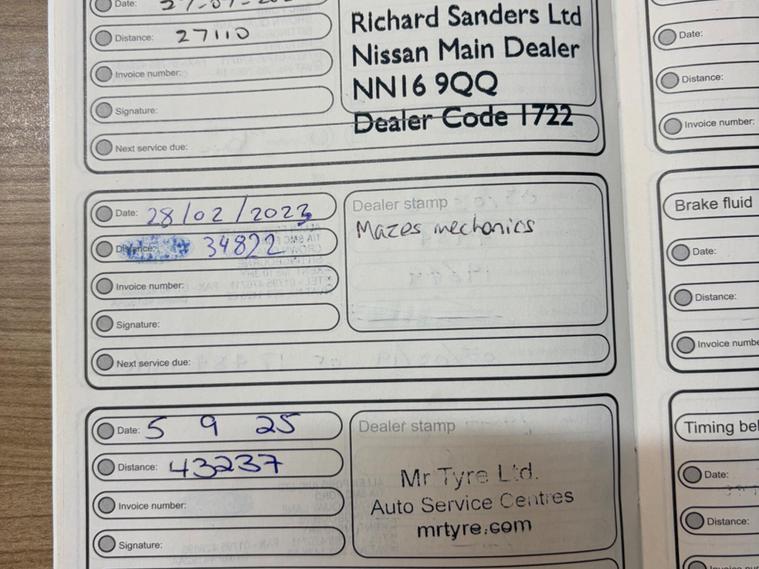 Date:
Distance: 27110
Invoice number:
Signature:
Next service due:
Richard Sanders Ltd
Nissan Main Dealer
NN16 9QQ
Dealer Code 1722
Date: 28/02/2023
Distance: 34822
Invoice number:
Signature:
Next service due:
Dealer stamp
Mazes mechanics
Date: 5 9 25
Distance: 43237
Invoice number:
Signature:
Dealer stamp
Mr Tyre Ltd.
Auto Service Centres
mrtyre.com
Date:
Distance:
Invoice number:
Brake fluid
Date:
Distance:
Timing
Date:
Distance: